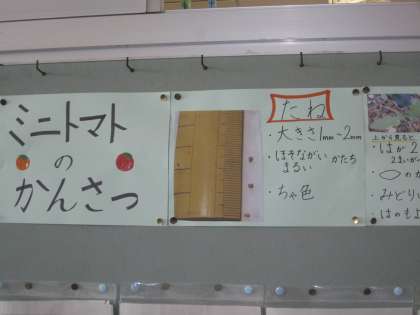 ミニトマト
の
かんさつ
たね
・大きさ1mm~2mm
・ほそながい かたち
まるい
・ちゃ色
上から見ると
・はが2
・みどりい
・はのもよ